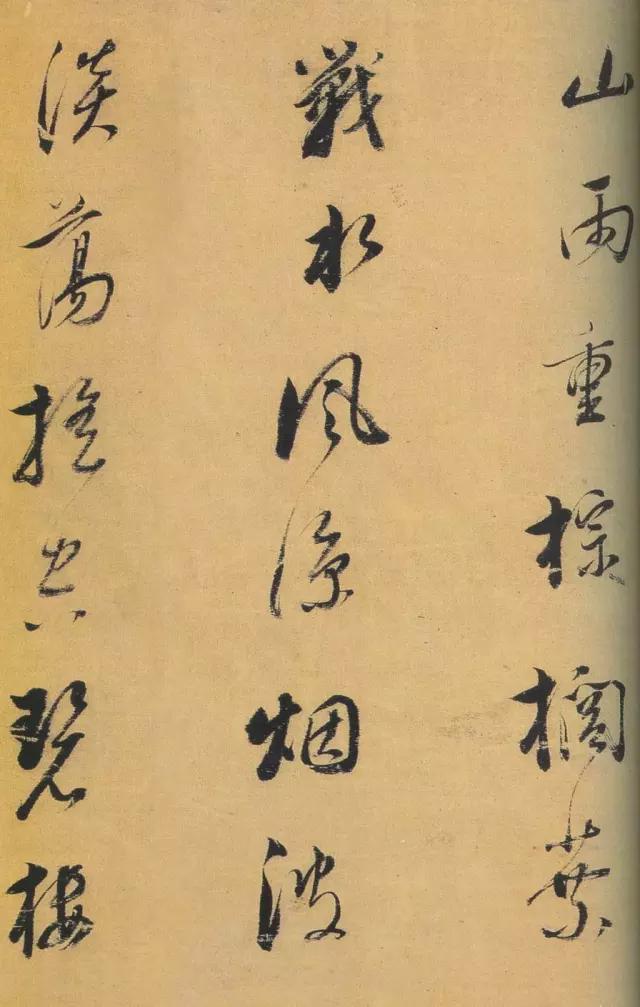 山雨重棕櫚葉
戰水風涼烟波
淡蕩搖空碧樓